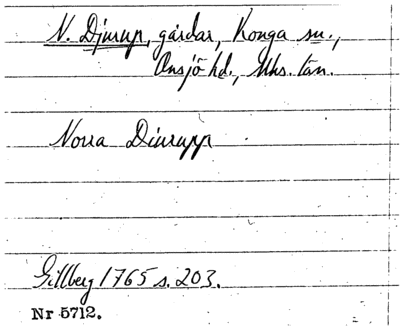 N. Djurup, gårdar, Konga sn.,
Onsjö hd., Mhs. län.
Norra Diurupp
Gillberg 1765 s. 203.
Nr 5712.